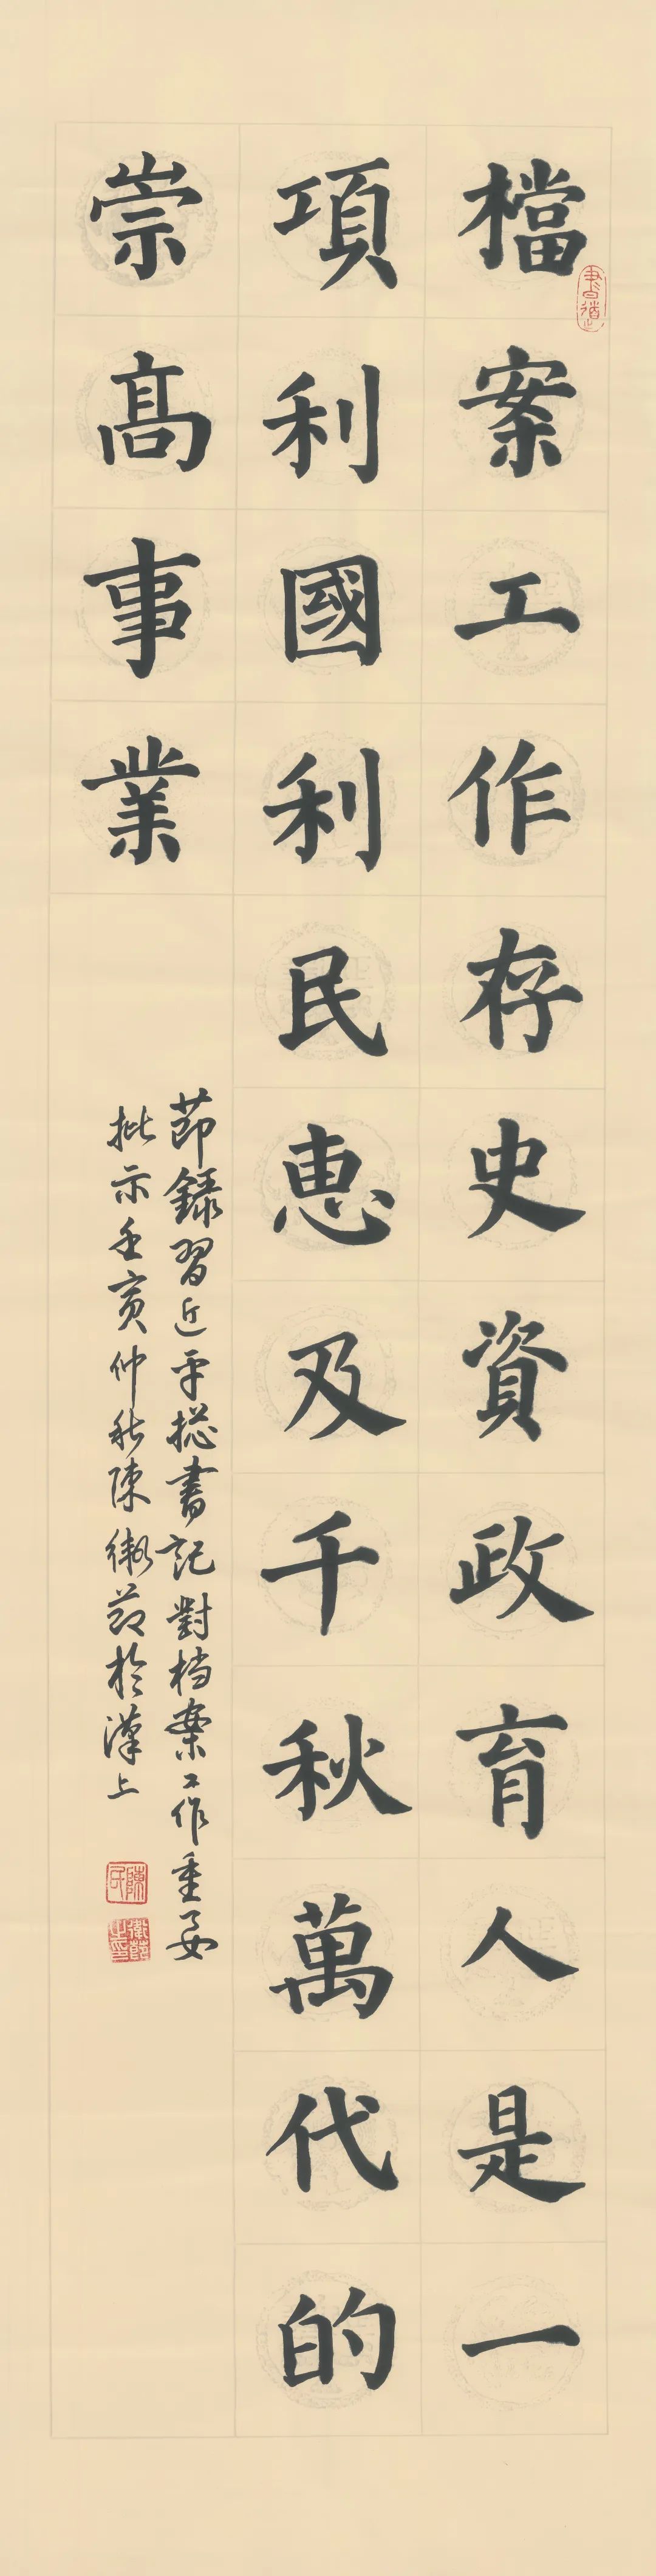 檔案工作存史資政育人是一
項利國利民惠及千秋萬代的
崇高事業
節錄習近平總書記對档案工作重要
批示壬寅仲秋陳衛節於漢上
陳氏
衛節之印